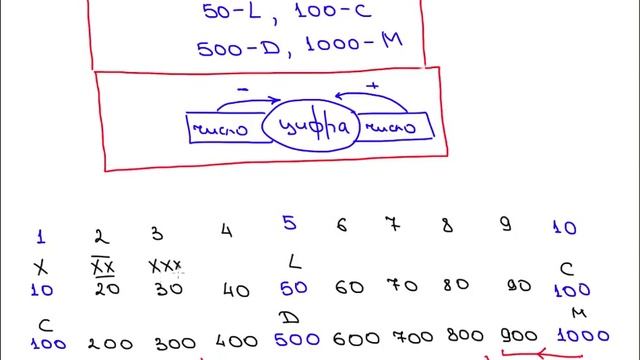 50-L, 100-C
500-D, 1000-M
- +
число цифра число
1 2 3 4 5 6 7 8 9 10
X XX XXX L C
10 20 30 40 50 60 70 80 90 100
C D M
100 200 300 400 500 600 700 800 900 1000